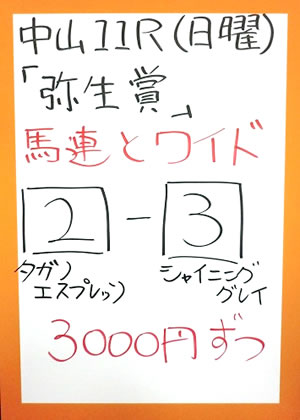 中山11R(日曜)
「弥生賞」
馬連とワイド
2 - 3
タガノ
エスプレッソ
シャイニング
グレイ
3000円ずつ